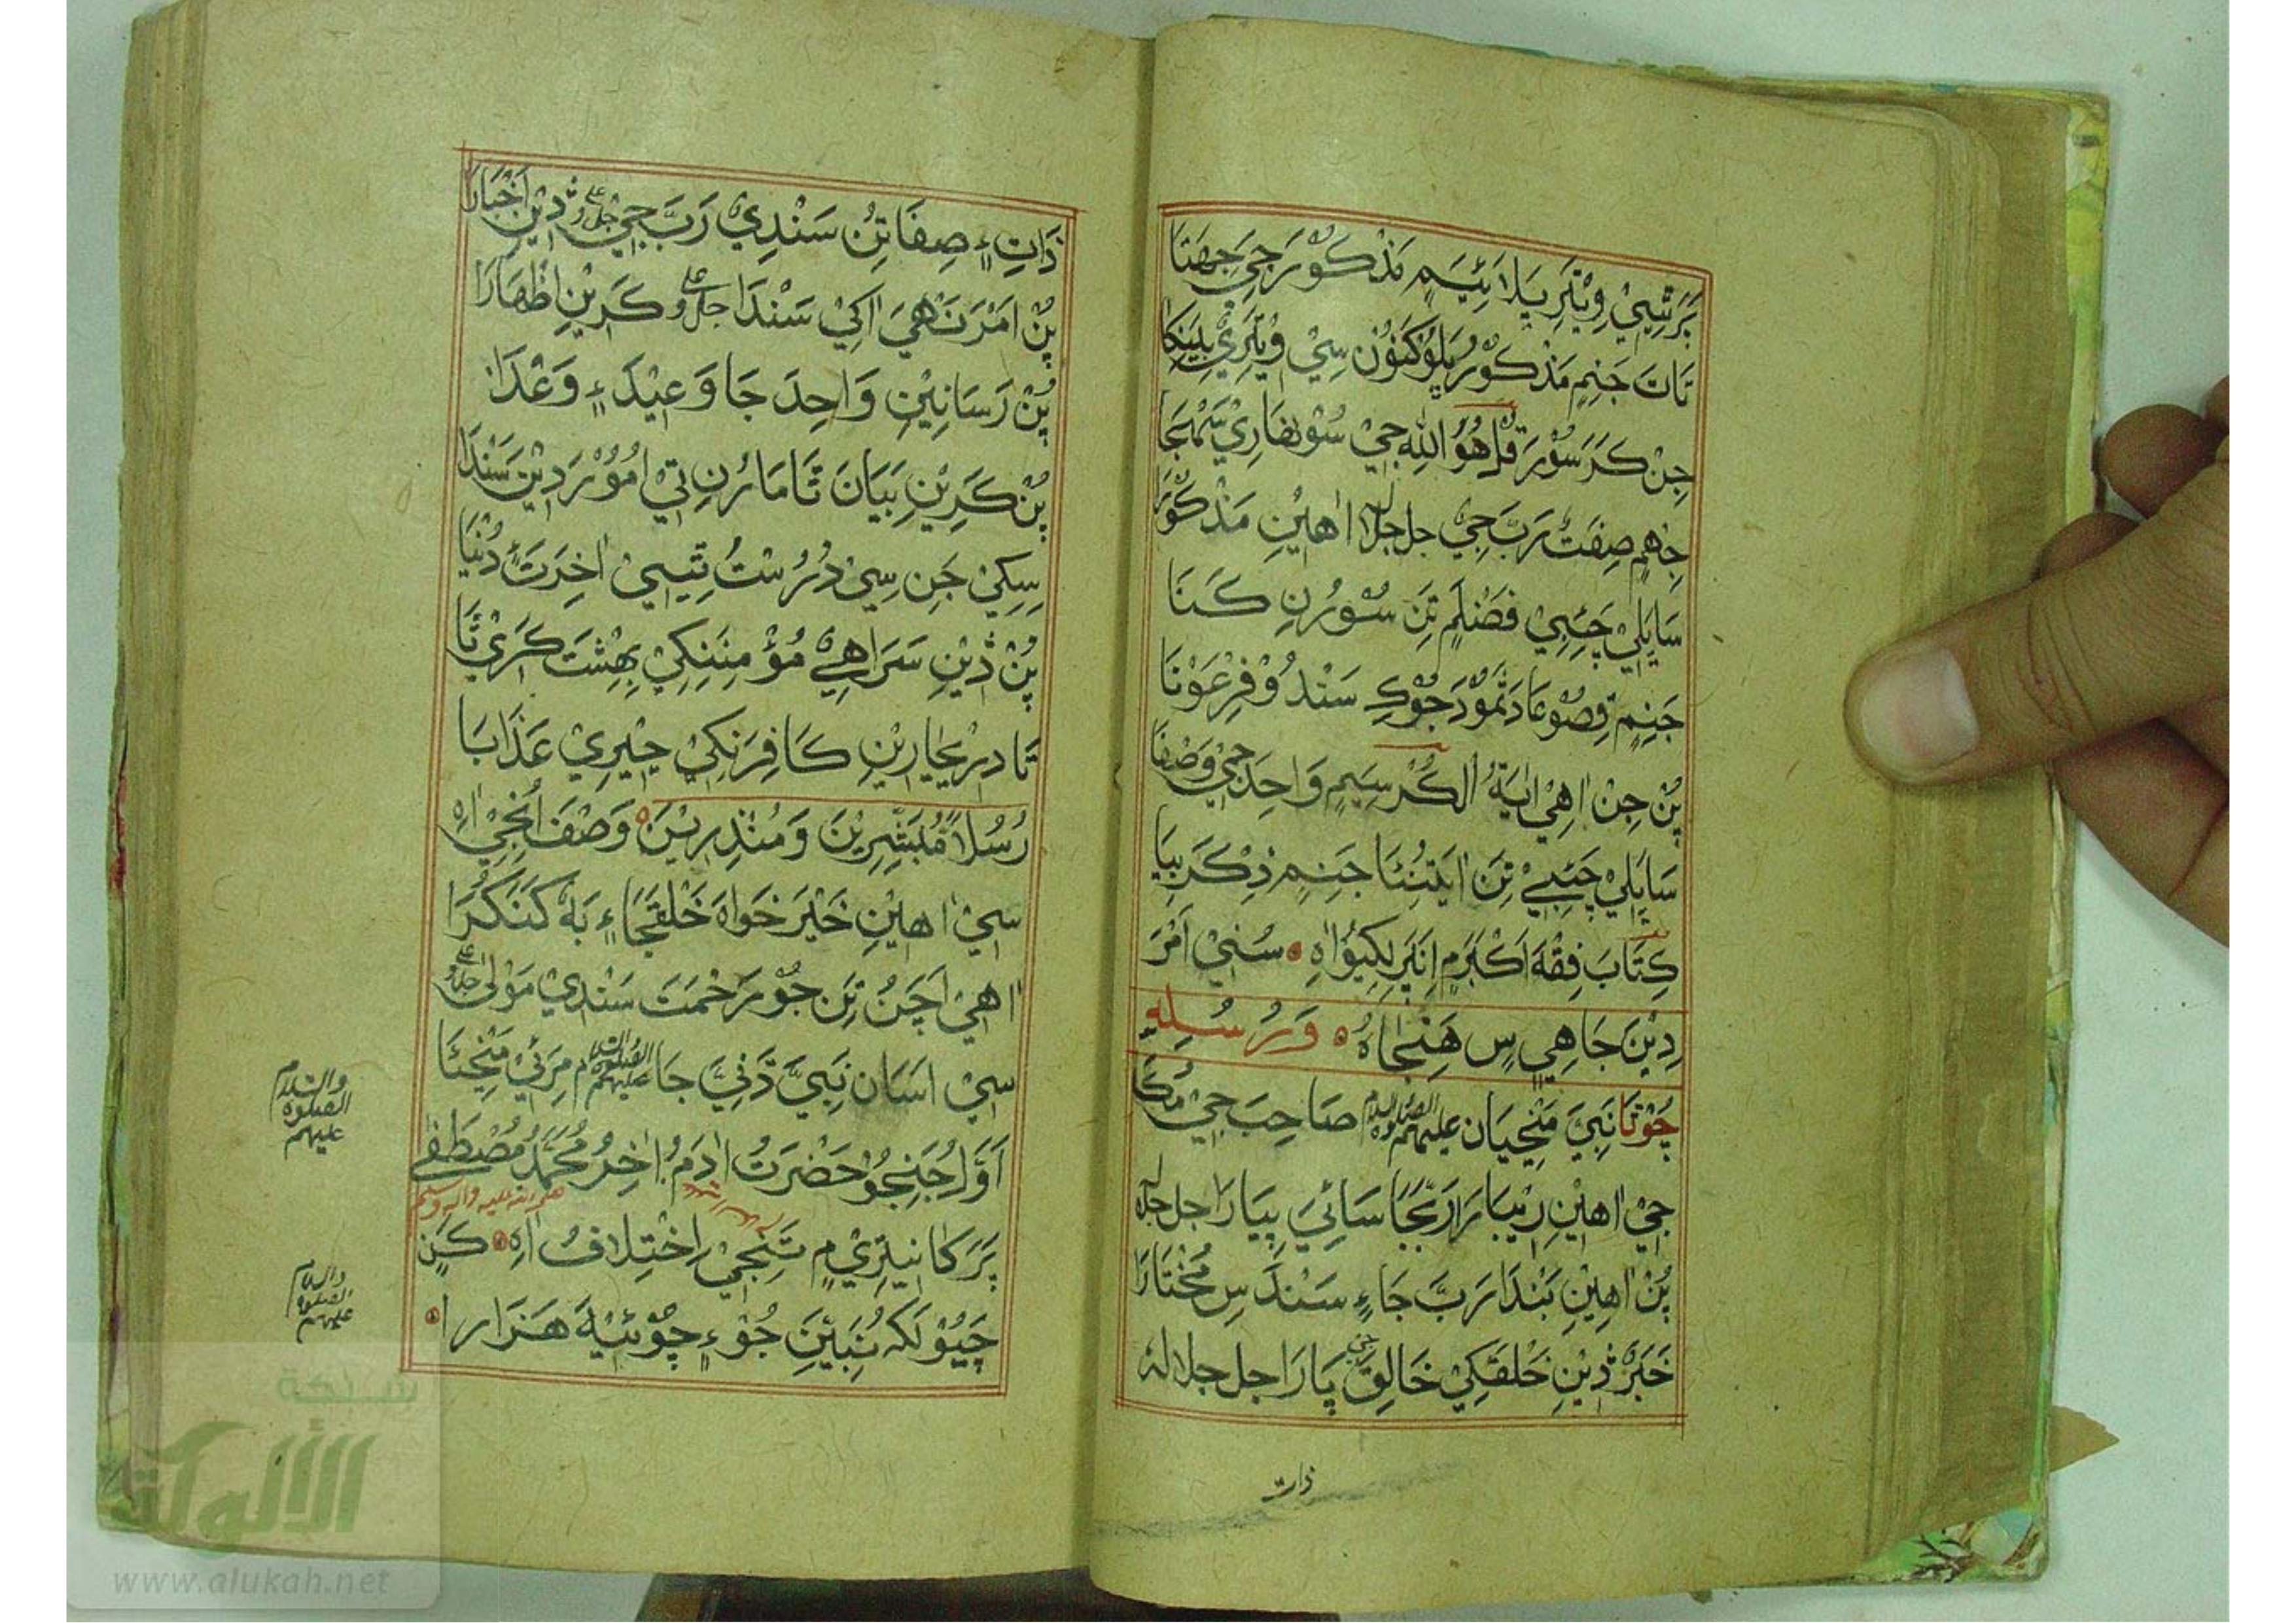 بَرَشِيْ وِيْتَرِ پَلَائِيَمِ مَذْكُوْرَ جِيَ جِهَتَا
تَاتَ جَنِمِ مَذْكُوْرُ
جِنْ كَرَ سُوْرَ قُلْ هُوَ اللهِ جِيْ
جِهِمِ صِفَتُ رَبَّ جِيْ جل جلاله اٰهِيْنِ مَذْكُوْرَ
سَايِلِيْ چَئِيِيْ فَضْلَمِ تِنِ سُوْرُنِ كَنَا
جَنِمِ قِصُوْ عَادَ ثَمُوْدَ جُوْكِ سَنْدُوْ فِرْعَوْنَا
پُنْ جِنْ اٰهِيْ اٰيَةُ الْكُرْسِيَمِ وَاحِدَ جِيْ وَصْفَا
سَايِلِيْ چَئِيِيْ تِنِ جَنِمِ ذِكْرَ بِيَا
كِتَابَ فِقْهَ اَكْبَرَمِ اِنَپَرِ لِكِيُوْ اٰهِ سُنِيْ اَمْرَ
دِيْنَ جَا هِيِ سِ هَنِجَاهُ وَرُسُلِهٖ
چُوْتَا نَبِيَ مَنِجِيَان عليهم الصلوة والسلام صَاحِبَ جِيْ مُكَا
جِيْ اٰهِيْنِ رِيْبَارَا رَبَّجَا سَائِيَ پِيَارَا جل جلاله
پُنْ اٰهِيْنِ بَنْدَا رَبَّ جَاءٍ سَنْدَسِ مُخْتَارَا
خَبَرَ ڎِيْنِ خَلْقَكِيْ خَالِقَ جي پَارَا جل جلاله
ذات
ذَاتِءٍ صِفَاتِنُ سَنْدِيْ رَبَّ جِيْ جل و علىٰ ڎِيْنِ اَخْبَارَا
پُنْ اَمْرَ نَهْيَ اٰكِيْ سَنْدَا جل و على كَرِيْنِ اظْهَارَا
پُنْ رَسَانِيْنِ وَاحِدَ جَا وَعِيْدَءٍ وَعْدَا
پُنْ كَرِيْنِ بَيَانَ تَامَا رُنِ تِيْ اُمُوْرَ دِيْنَ سَنْدَا
سِكِيْ جَنِ سِيْ دُرُسْتُ تِيِيْ اٰخِرَتَ دُنْيَا
پُنْ ڎِيْنِ سَرَاهِيْ مُؤْمِنَنِكِيْ بِهِشْتَ كَرِيْ تَا
تَا دِرِيْجَارِيْنِ كَافِرَنِكِيْ چِيْرِيْ عَذَابَا
رُسُلاً مُبَشِّرِيْنَ وَمُنْذِرِيْنَ وَصْفَ اُنْجِيْ اٰهِ
سِيْ اٰهِيْنِ خَيْرَ خَوَاهَ خَلْقَجَاءٍ بَهْ كَنَكُرَا
اٰهِيْ اَچَنُ تِنِ جُوْ رَحْمَتَ سَنْدِيْ مَوْلٰى جل و على
سِيْ اسَان نَبِيَّ دَّنِيَّ جَا عليهم الصلوة والسلام مِرَئِيْ مَنْجِئَا
اَوَّلُ جَنِجُوْ حَضْرَتُ اٰدَمُ اٰخِرُ مُحَمَّدُ مُصْطَفٰى
صلى الله عليه واله وسلم
پَرَكَا نِيْتِرِيْ مِ تَنِجِيْ اِخْتِلَافُ اٰهِ كَنِ
چَيُوْ لَكْهُ نَبِيَّنِ جُوْءٍ چُوْئِيْهَ هَزَارَا
والسلام
الصلوة
عليهم
والسلام
الصلوة
عليهم
شبكة
الألوكة
www.alukah.net